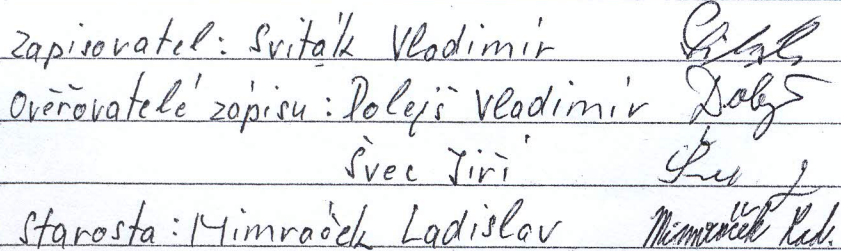 Zapisovatel: Sviták Vladimír
Ověřovatelé zápisu: Dolejš Vladimír Dolejš
Švec Jiří
Starosta: Mimráček Ladislav Mimráček Lad.